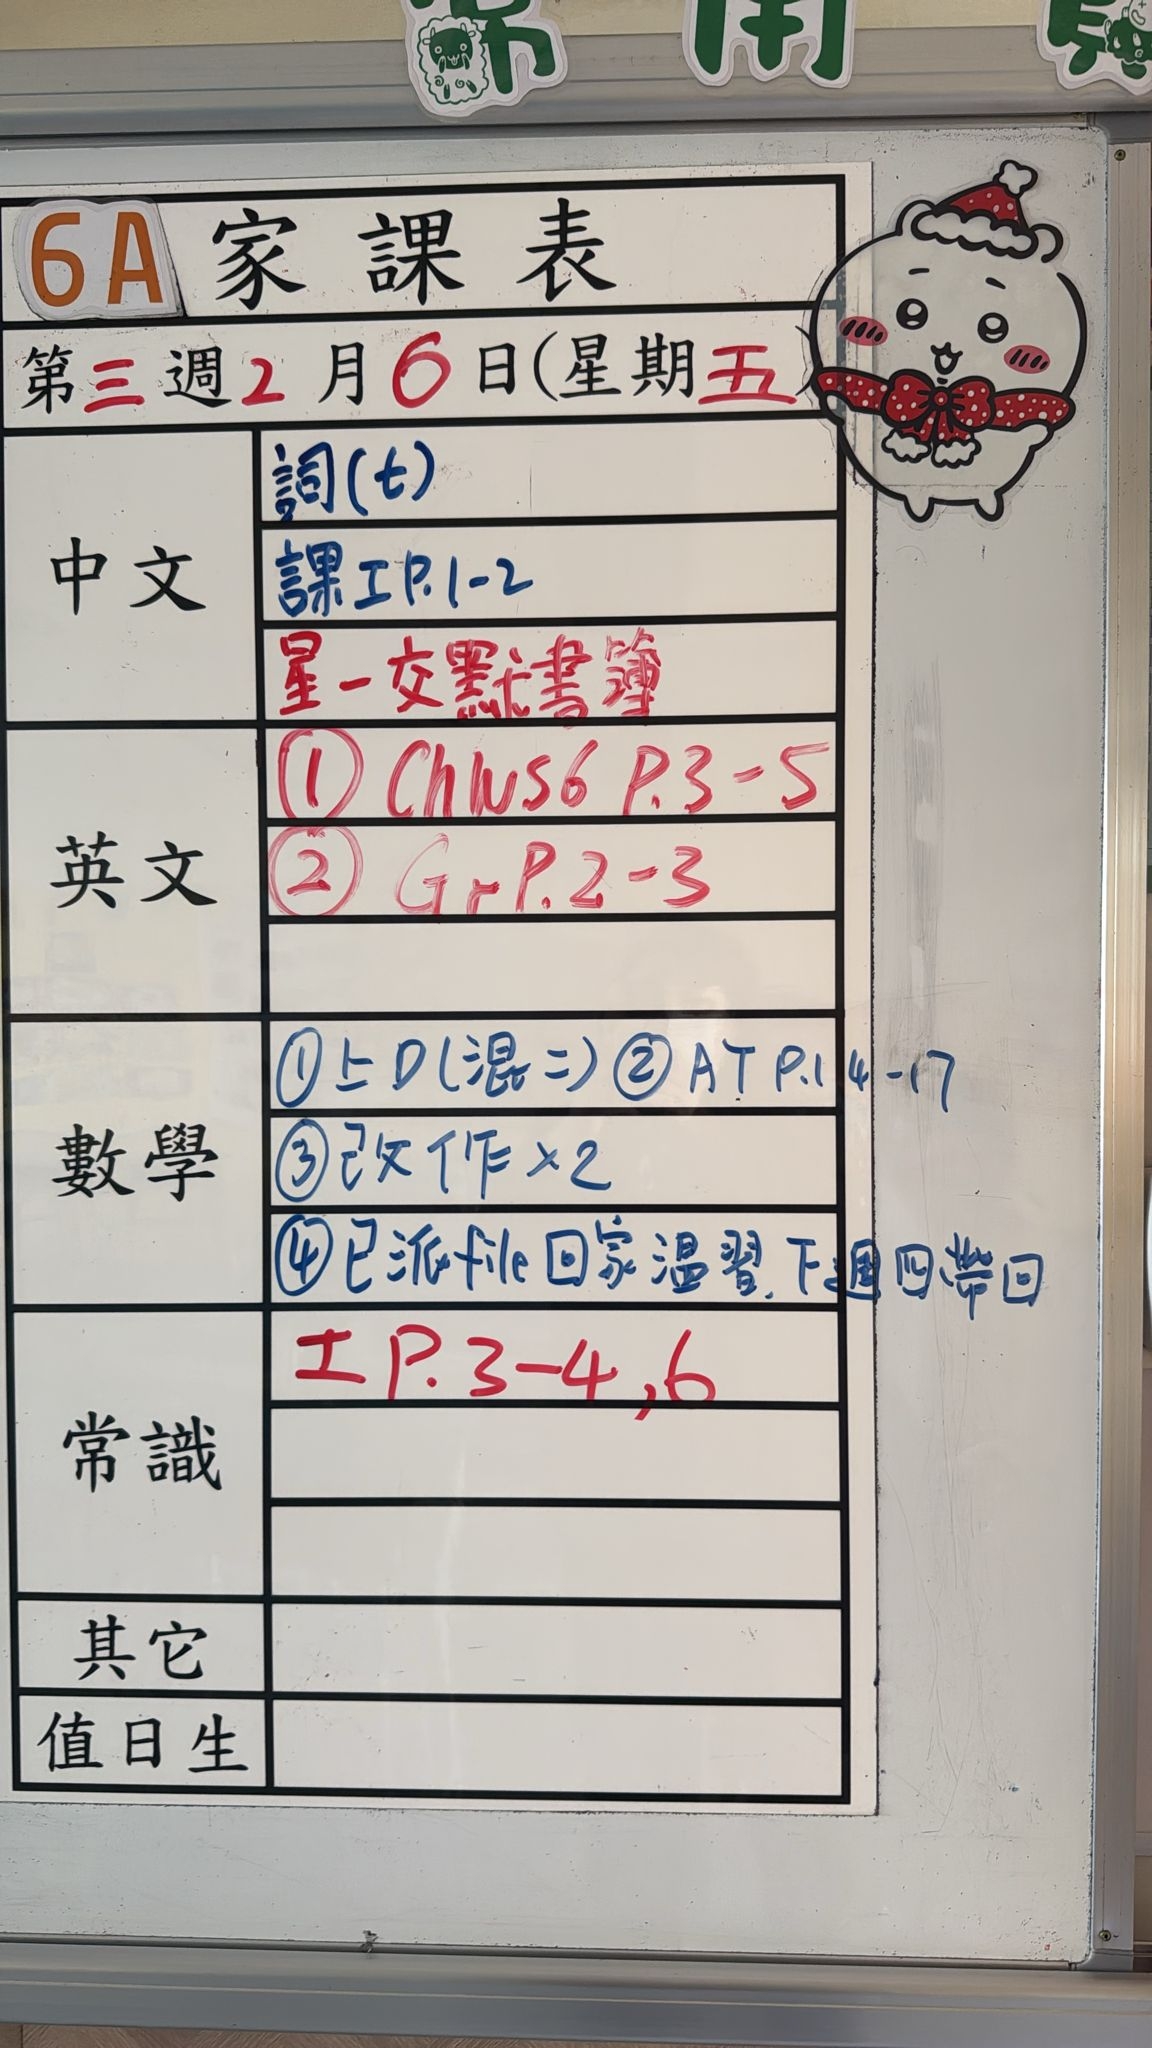 常用
6A 家課表
第三週2月6日(星期五)
中文
詞(七)
課工P.1-2
星一交默書簿
英文
① Ch1US6 P.3-5
② Gr P.2-3
數學
①上D(混二) ②AT P.14-17
③改作×2
④已派file回家温習,下週四帶回
常識
工P.3-4,6
其它
值日生